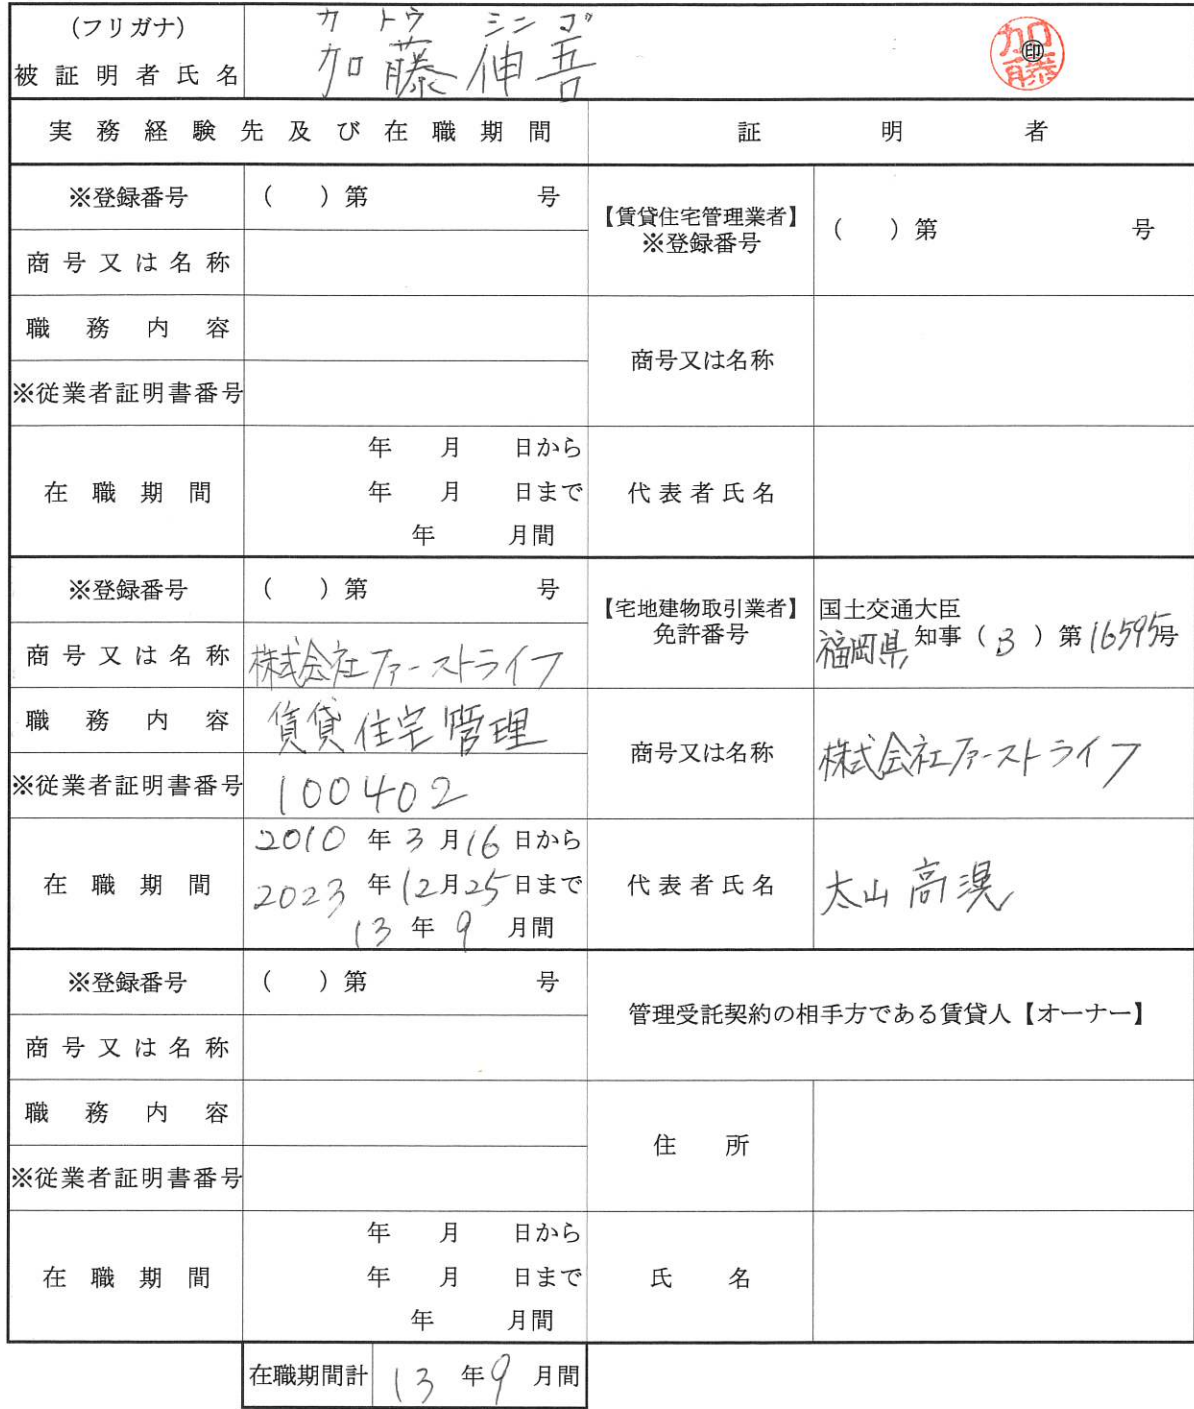 (フリガナ) カトウ シンゴ
被証明者氏名 加藤伸吾 ㊞ 加藤
実務経験先及び在職期間 証明者
※登録番号 ( )第 号
【賃貸住宅管理業者】
※登録番号 ( )第 号
商号又は名称
職務内容
商号又は名称
※従業者証明書番号
在職期間
年 月 日から
年 月 日まで
年 月間
代表者氏名
※登録番号 ( )第 号
【宅地建物取引業者】
免許番号
国土交通大臣
福岡県知事(3)第16595号
商号又は名称 株式会社ファーストライフ
職務内容 賃貸住宅管理
商号又は名称 株式会社ファーストライフ
※従業者証明書番号 100402
在職期間
2010年3月16日から
2023年12月25日まで
13年9月間
代表者氏名 太山高滉
※登録番号 ( )第 号
管理受託契約の相手方である賃貸人【オーナー】
商号又は名称
職務内容
住所
※従業者証明書番号
在職期間
年 月 日から
年 月 日まで
年 月間
氏名
在職期間計 13年9月間